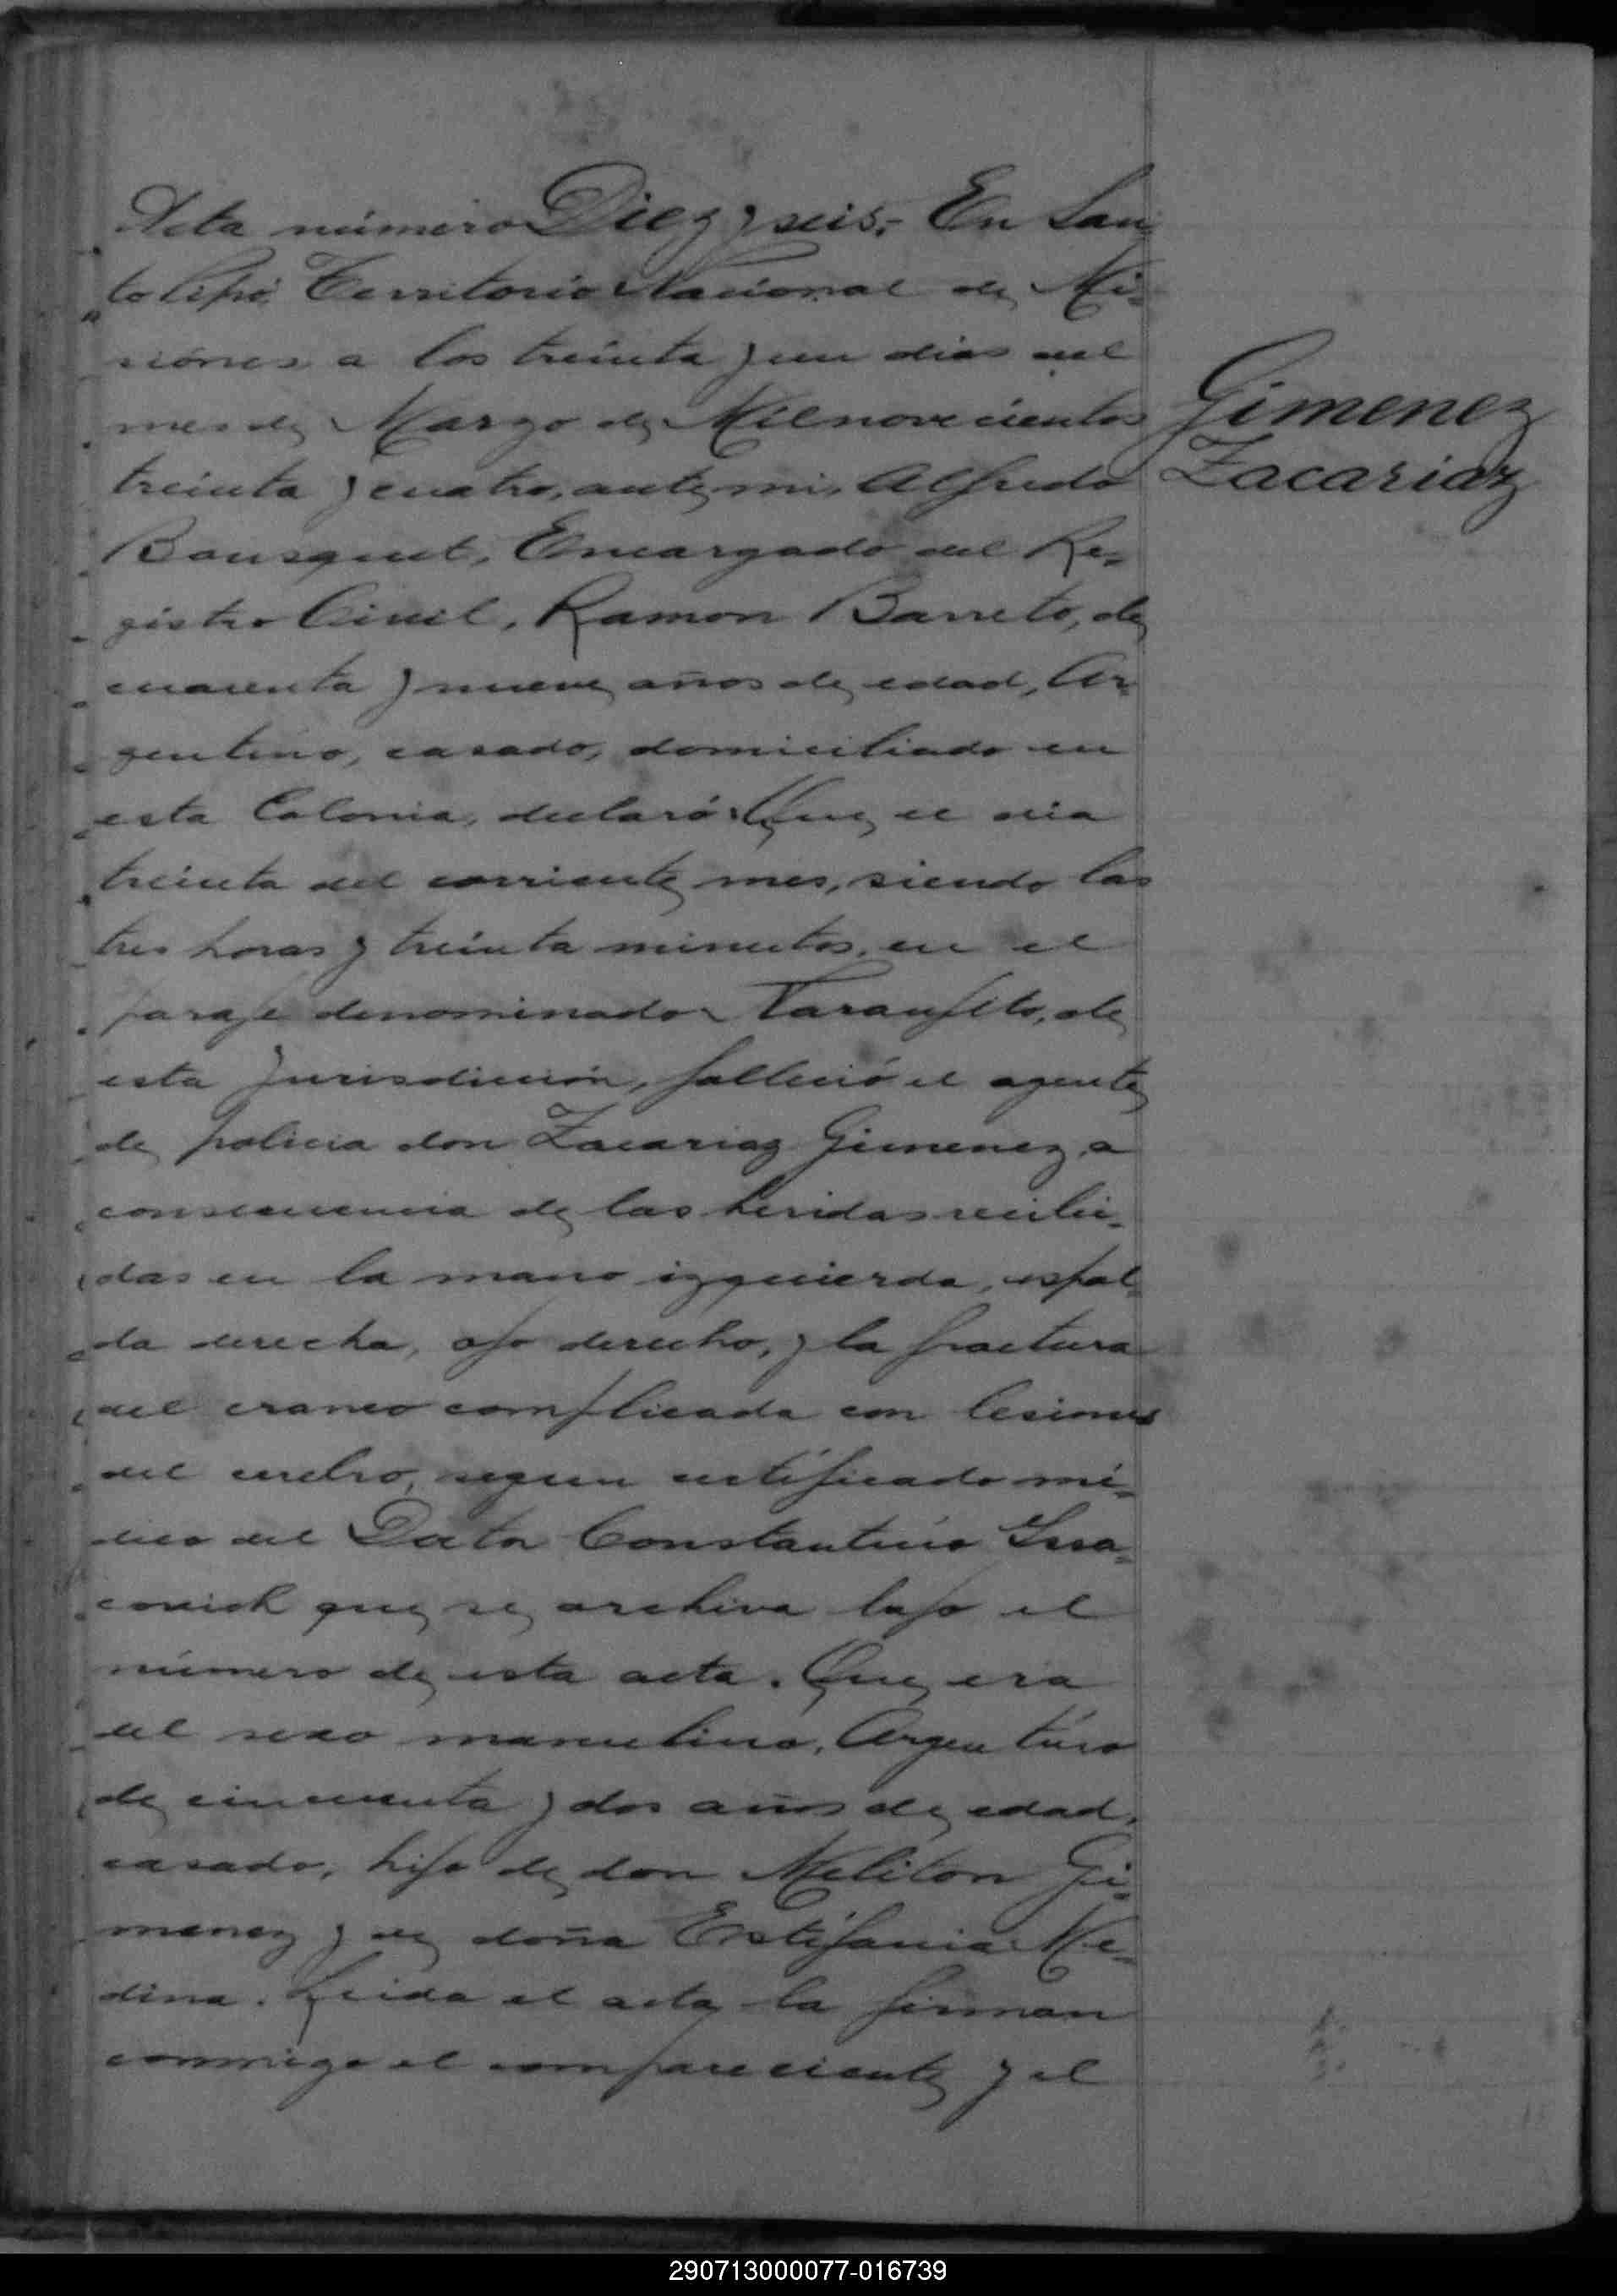 Acta número Diez y seis.- En San
to Pipó Territorio Nacional de Mi-
siónes a los treinta y un dias del
mes de Marzo de Mil novecientos
treinta y cuatro, ante mi, Alfredo
Bousquet, Encargado del Re-
gistro Civil, Ramon Barreto, de
cuarenta y nueve años de edad, Ar-
gentino, casado, domiciliado en
esta Colonia, declaró: Que el dia
treinta del corriente mes, siendo las
tres horas y treinta minutos, en el
paraje denominado de
esta Jurisdicción, falleció el agente
de policia don Zacariaz Gimenez, a
consecuencia de las heridas recibi-
das en la mano izquierda, espal-
da derecha, ojo derecho, y la fractura
del craneo complicada con lesiones
del cerebro, segun certificado mé-
dico del Doctor Constantino Issa-
covich que se archiva bajo el
número de esta acta. Que era
del sexo masculino, Argentino
de cincuenta y dos años de edad,
casado, hijo de don Meliton Gi-
menez y de doña Estéfania Me-
dina. Leida el acta la firman
conmigo el compareciente y el
Gimenez
Zacariaz
290713000077-016739